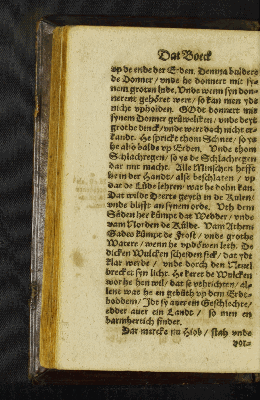 Dat Boeck
vp de ende der Erden. Dennya bulders
de Donner / vnde he donnert mit sy-
nem groten lude. Vnde wenn syn don-
nerent gehöret wert / so kan men yds
nicht vpholden. GOde donnert mit
synem Donner grüweliken / vnde deyt
grothe dinck / vnde wert doch nicht er-
kandt. He spricke thom Schnee / so ys
he also balde vp Erden. Vnde thom
Schlachregen / so ys de Schlachregen
dar mit macht. Alle Minschen hefft
he in der Handt / alse beschlaten / vp
dat de Lüde lehren / wat he dohn kan.
Dat wilde Deerte geyth in de
vnde blifft an synem orde. Uth dem
Süden her kümpt dat Wedder / vnde
vam Norden de Külde. Vam Athem
Gades kümpt de Frost / vnde grothe
Watere / wenn he updöwen leth. De
dicken Wulcken scheiden sick / dat ydt
klar werde / vnde dorch den Neuel
breckt syn licht. He keret de Wulcken
wor he hen wil / dat se vthrichten / al-
lent wat he en gebüth vp dem Erdt-
boddem / Idt sy auer ein Geschlechte /
edder auer ein Landt / so men en
barmhertich findet.
Dar mercke nu Hiob / stah vnde